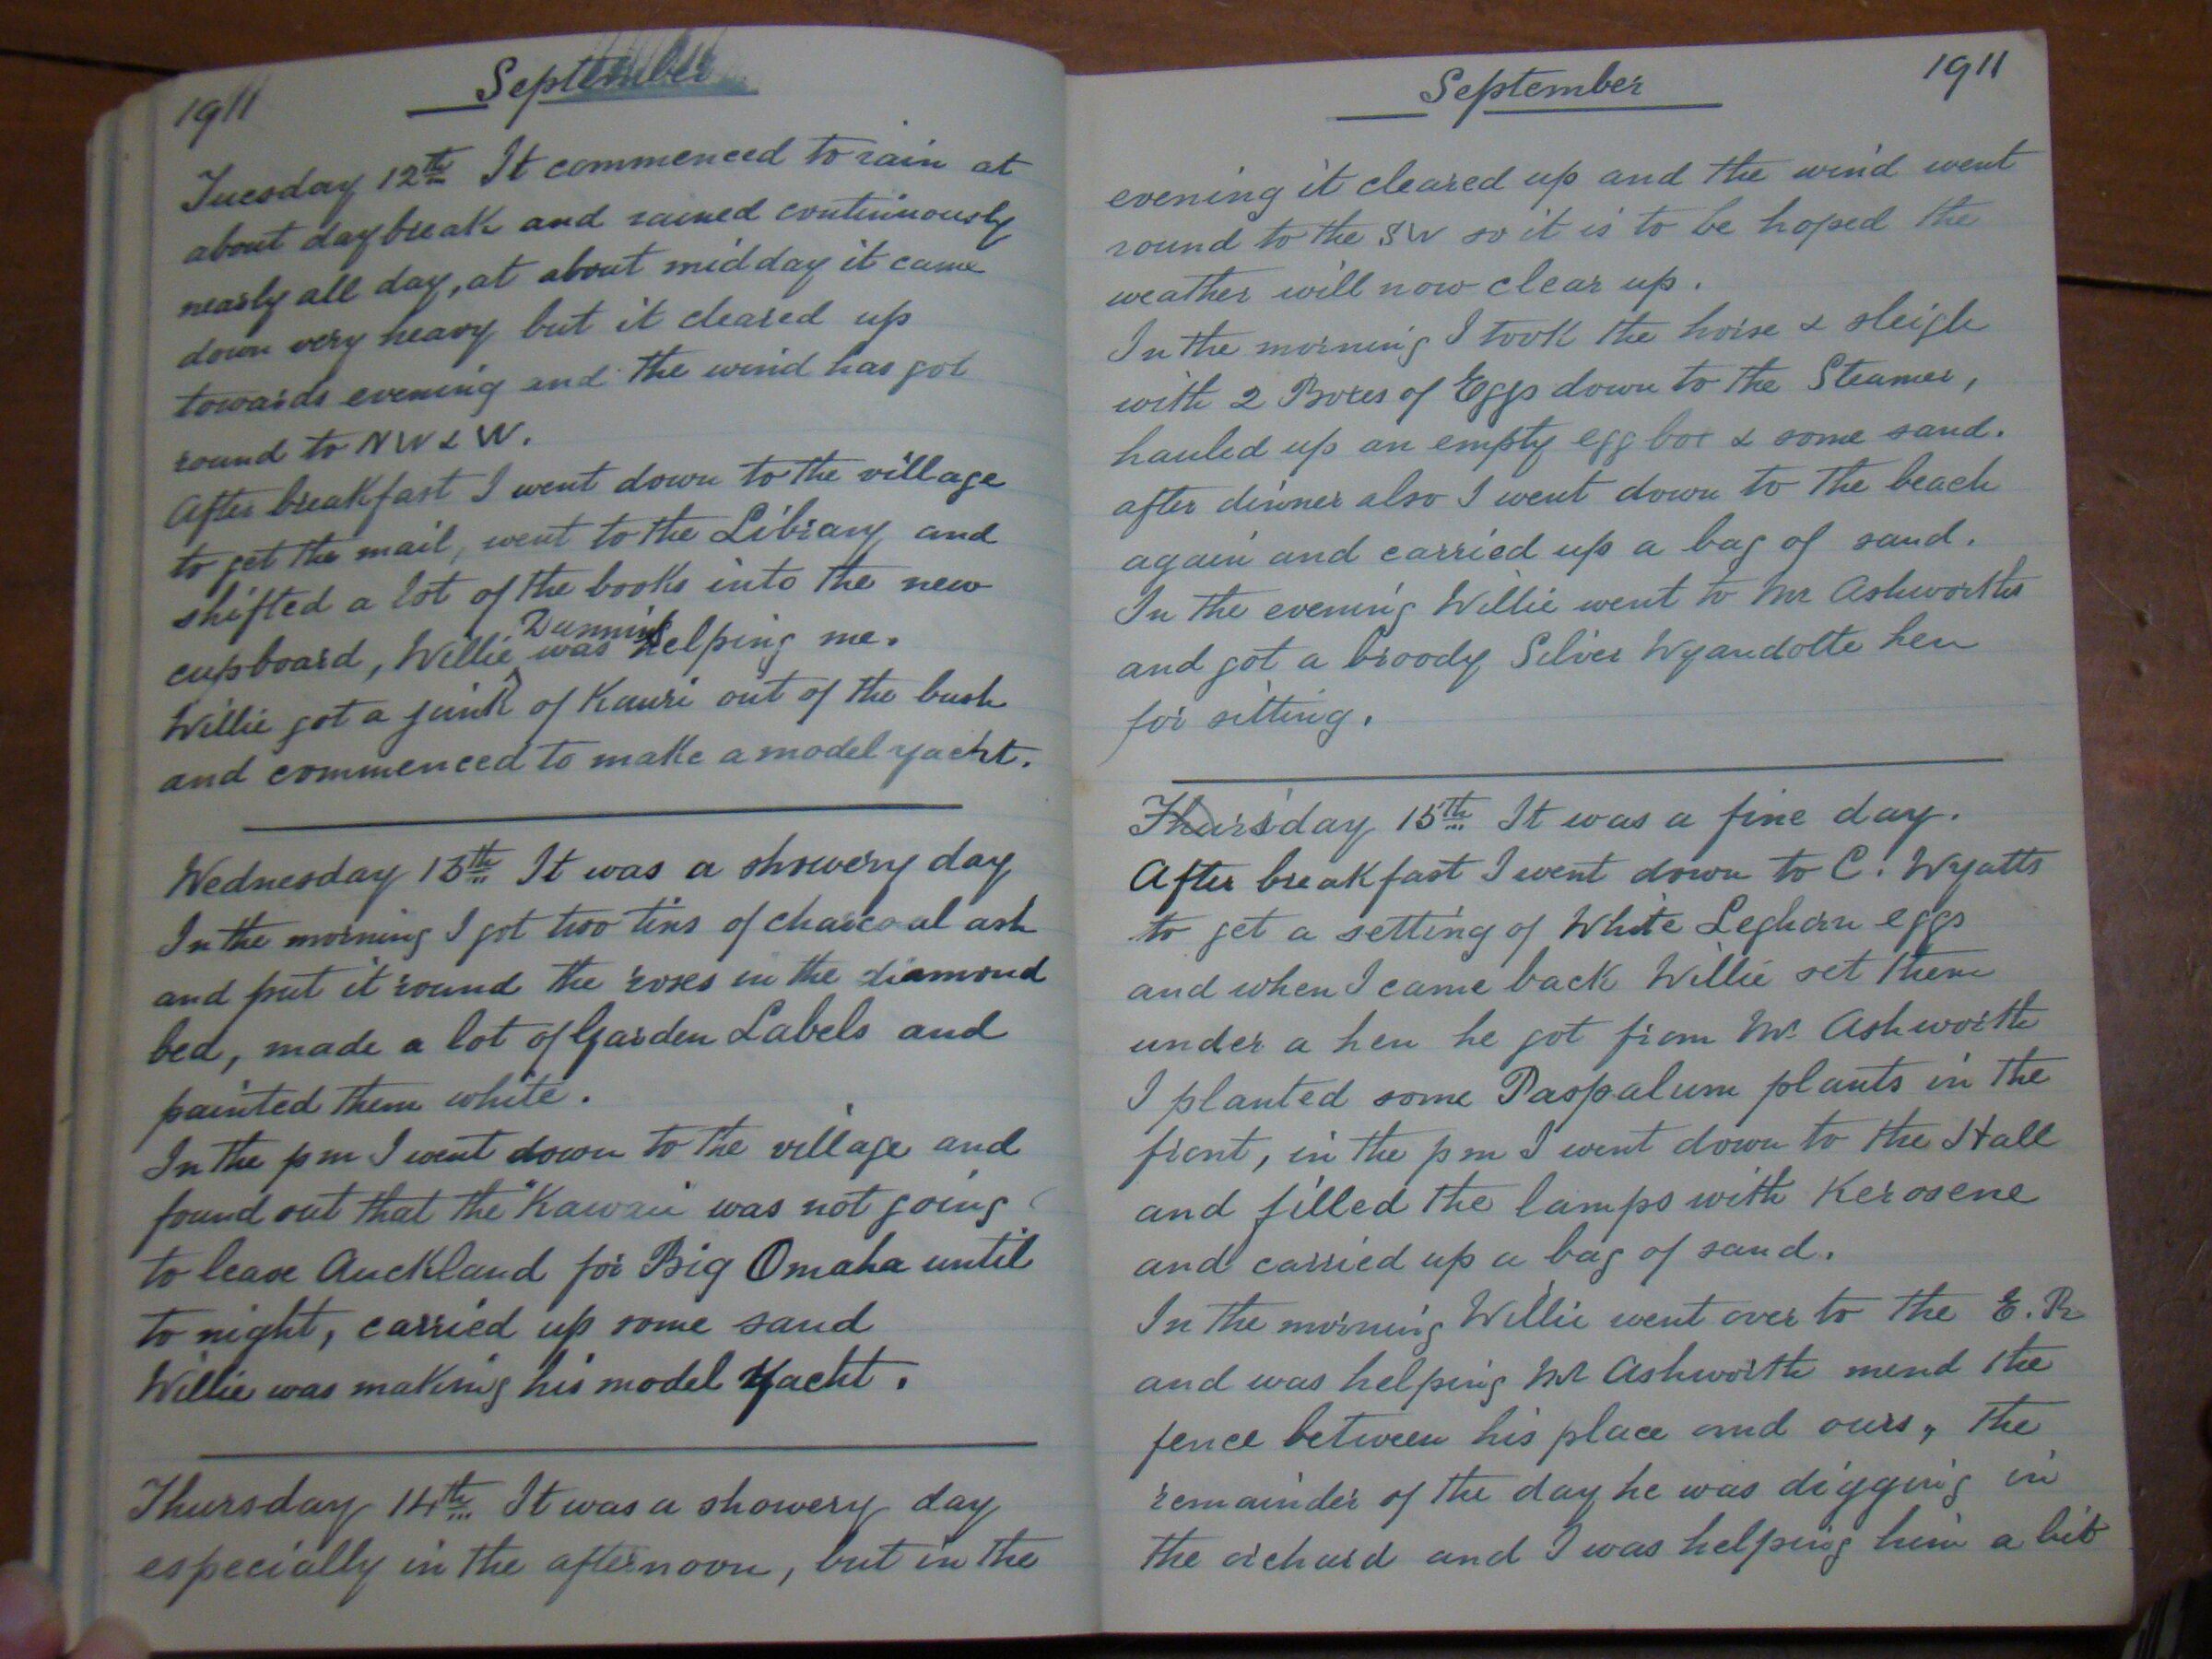 1911 September
Tuesday 12th It commenced to rain at
about daybreak and rained continuously
nearly all day, at about midday it came
down very heavy but it cleared up
towards evening and the wind has got
round to NW & W.
After breakfast I went down to the village
to get the mail, went to the Library and
shifted a lot of the books into the new
Dunning
cupboard, Willie was helping me.
Willie got a junk of Kauri out of the bush
and commenced to make a model yacht.
Wednesday 13th It was a showery day
In the morning I got two tins of charcoal ash
and put it round the roses in the diamond
bed, made a lot of Garden Labels and
painted them white.
In the pm I went down to the village and
found out that the "Kawau" was not going
to leave Auckland for Big Omaha until
to night, carried up some sand
Willie was making his model Yacht.
Thursday 14th It was a showery day
especially in the afternoon, but in the
September 1911
evening it cleared up and the wind went
round to the SW so it is to be hoped the
weather will now clear up.
In the morning I took the horse & sleigh
with 2 Boxes of Eggs down to the Steamer,
hauled up an empty egg box & some sand.
after dinner also I went down to the beach
again and carried up a bag of sand.
In the evening Willie went to Mr Ashworths
and got a broody Silver Wyandotte hen
for sitting.
Thursday 15th It was a fine day.
After breakfast I went down to C. Wyatts
to get a setting of White Leghorn eggs
and when I came back Willie set them
under a hen he got from Mr Ashworth
I planted some Paspalum plants in the
front, in the pm I went down to the Hall
and filled the lamps with Kerosene
and carried up a bag of sand.
In the morning Willie went over to the E. R
and was helping Mr Ashworth mend the
fence between his place and ours, the
remainder of the day he was digging in
the orchard and I was helping him a bit